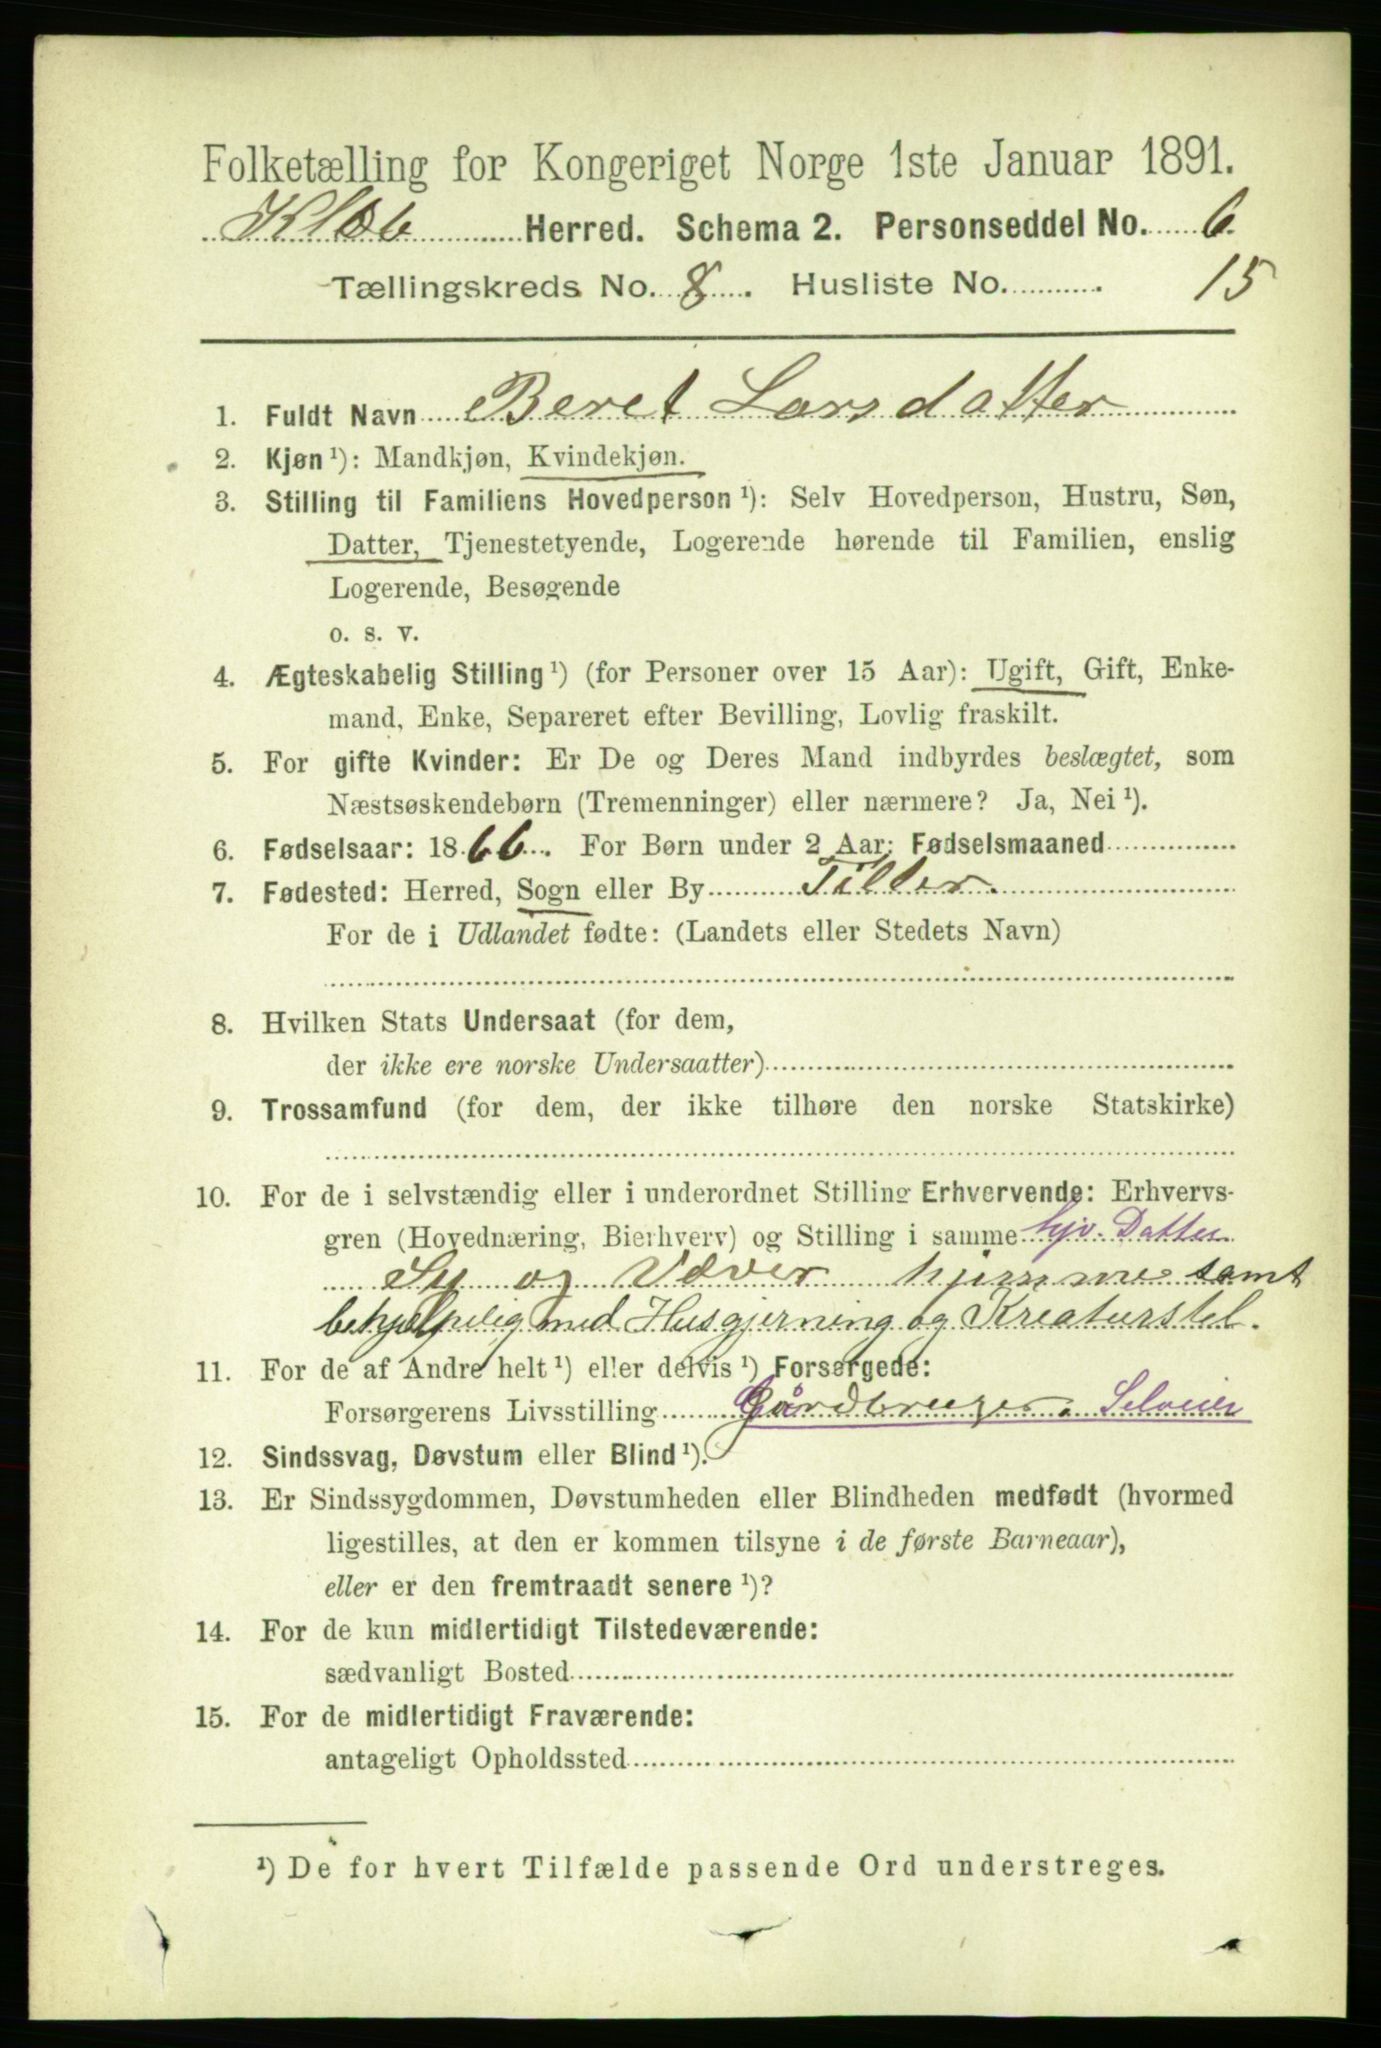 Folketælling for Kongeriget Norge 1ste Januar 1891.
Klæb Herred. Schema 2. Personseddel No. 6.
Tællingskreds No. 8. Husliste No. 15
1. Fuldt Navn Beret Larsdatter
2. Kjøn ¹): Mandkjøn, Kvindekjøn.
3. Stilling til Familiens Hovedperson ¹): Selv Hovedperson, Hustru, Søn,
Datter, Tjenestetyende, Logerende hørende til Familien, enslig
Logerende, Besøgende
o. s. v.
4. Ægteskabelig Stilling ¹) (for Personer over 15 Aar): Ugift, Gift, Enke-
mand, Enke, Separeret efter Bevilling, Lovlig fraskilt.
5. For gifte Kvinder: Er De og Deres Mand indbyrdes beslægtet, som
Næstsøskendebørn (Tremenninger) eller nærmere? Ja, Nei ¹).
6. Fødselsaar: 1866. For Børn under 2 Aar: Fødselsmaaned
7. Fødested: Herred, Sogn eller By Tiller
For de i Udlandet fødte: (Landets eller Stedets Navn)
8. Hvilken Stats Undersaat (for dem,
der ikke ere norske Undersaatter)
9. Trossamfund (for dem, der ikke tilhøre den norske Statskirke)
10. For de i selvstændig eller i underordnet Stilling Erhvervende: Erhvervs-
gren (Hovednæring, Bierhverv) og Stilling i samme hjv. Datter
Sy og Væver hjemme samt
behjelpelig med Husgjerning og Kreaturstel.
11. For de af Andre helt ¹) eller delvis ¹) Forsørgede:
Forsørgerens Livsstilling Gårdbruger. Selveier
12. Sindssvag, Døvstum eller Blind ¹).
13. Er Sindssygdommen, Døvstumheden eller Blindheden medfødt (hvormed
ligestilles, at den er kommen tilsyne i de første Barneaar),
eller er den fremtraadt senere ¹)?
14. For de kun midlertidigt Tilstedeværende:
sædvanligt Bosted
15. For de midlertidigt Fraværende:
antageligt Opholdssted
¹) De for hvert Tilfælde passende Ord understreges.